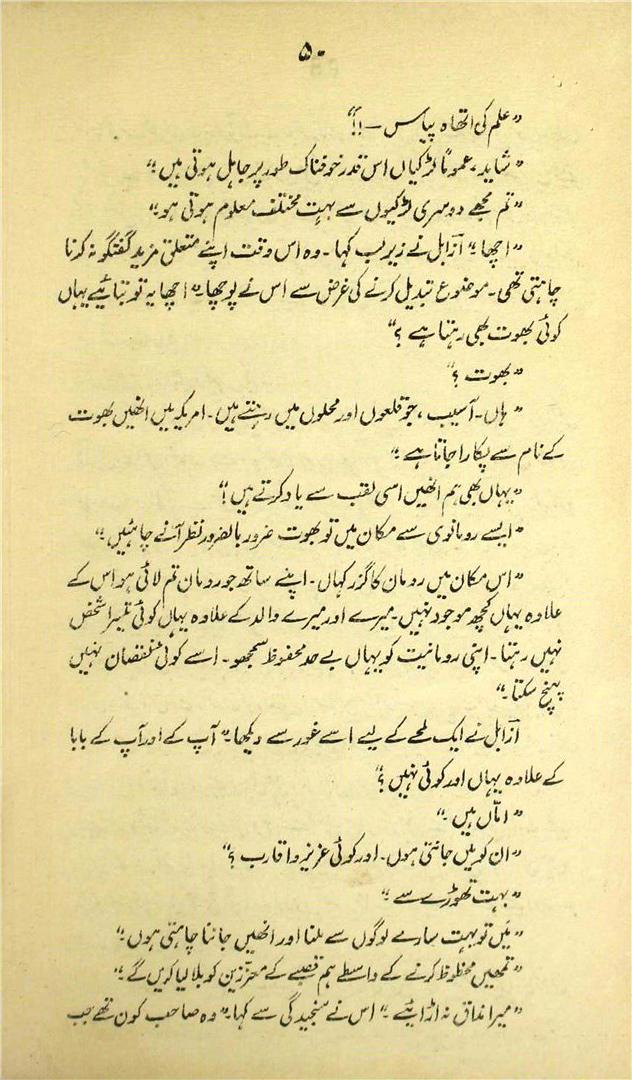 ۵۰
”علم کی اتھاہ پیاس — !!“
”شاید۔ عموماً لڑکیاں اس قدر خوفناک طور پر جاہل ہوتی ہیں۔“
”تم مجھے دوسری لڑکیوں سے بہت مختلف معلوم ہوتی ہو۔“
”اچھا۔“ ازابل نے زیرِ لب کہا۔ وہ اس وقت اپنے متعلق مزید گفتگو نہ کرنا
چاہتی تھی۔ موضوع تبدیل کرنے کی غرض سے اس نے پوچھا۔ ”اچھا یہ تو بتائیے یہاں
کوئی بھوت بھی رہتا ہے؟“
”بھوت؟“
”ہاں۔ آسیب، جو قلعوں اور محلوں میں رہتے ہیں۔ امریکہ میں انھیں بھوت
کے نام سے پکارا جاتا ہے۔“
”یہاں بھی ہم انھیں اسی لقب سے یاد کرتے ہیں!“
”ایسے رومانوی سے مکان میں تو بھوت ضرور بالضرور نظر آنے چاہئیں۔“
”اس مکان میں رومان کا گزر کہاں۔ اپنے ساتھ جو رومان تم لائی ہو اس کے
علاوہ یہاں کچھ موجود نہیں۔ میرے اور میرے والد کے علاوہ یہاں کوئی تیسرا شخص
نہیں رہتا۔ اپنی رومانیت کو یہاں بے حد محفوظ سمجھو۔ اسے کوئی نقصان نہیں
پہنچ سکتا۔“
ازابل نے ایک لمحے کے لیے اسے غور سے دیکھا۔ ”آپ کے اور آپ کے بابا
کے علاوہ یہاں اور کوئی نہیں؟“
”اماّں ہیں۔“
”ان کو میں جانتی ہوں۔ اور کوئی عزیز و اقارب؟“
”بہت تھوڑے سے۔“
”میں تو بہت سارے لوگوں سے ملنا اور انھیں جاننا چاہتی ہوں۔“
”تمھیں محظوظ کرنے کے واسطے ہم قصبے کے معززین کو بلا لیا کریں گے۔“
”میرا مذاق نہ اڑائیے۔“ اس نے سنجیدگی سے کہا۔ ”وہ صاحب کون تھے جب